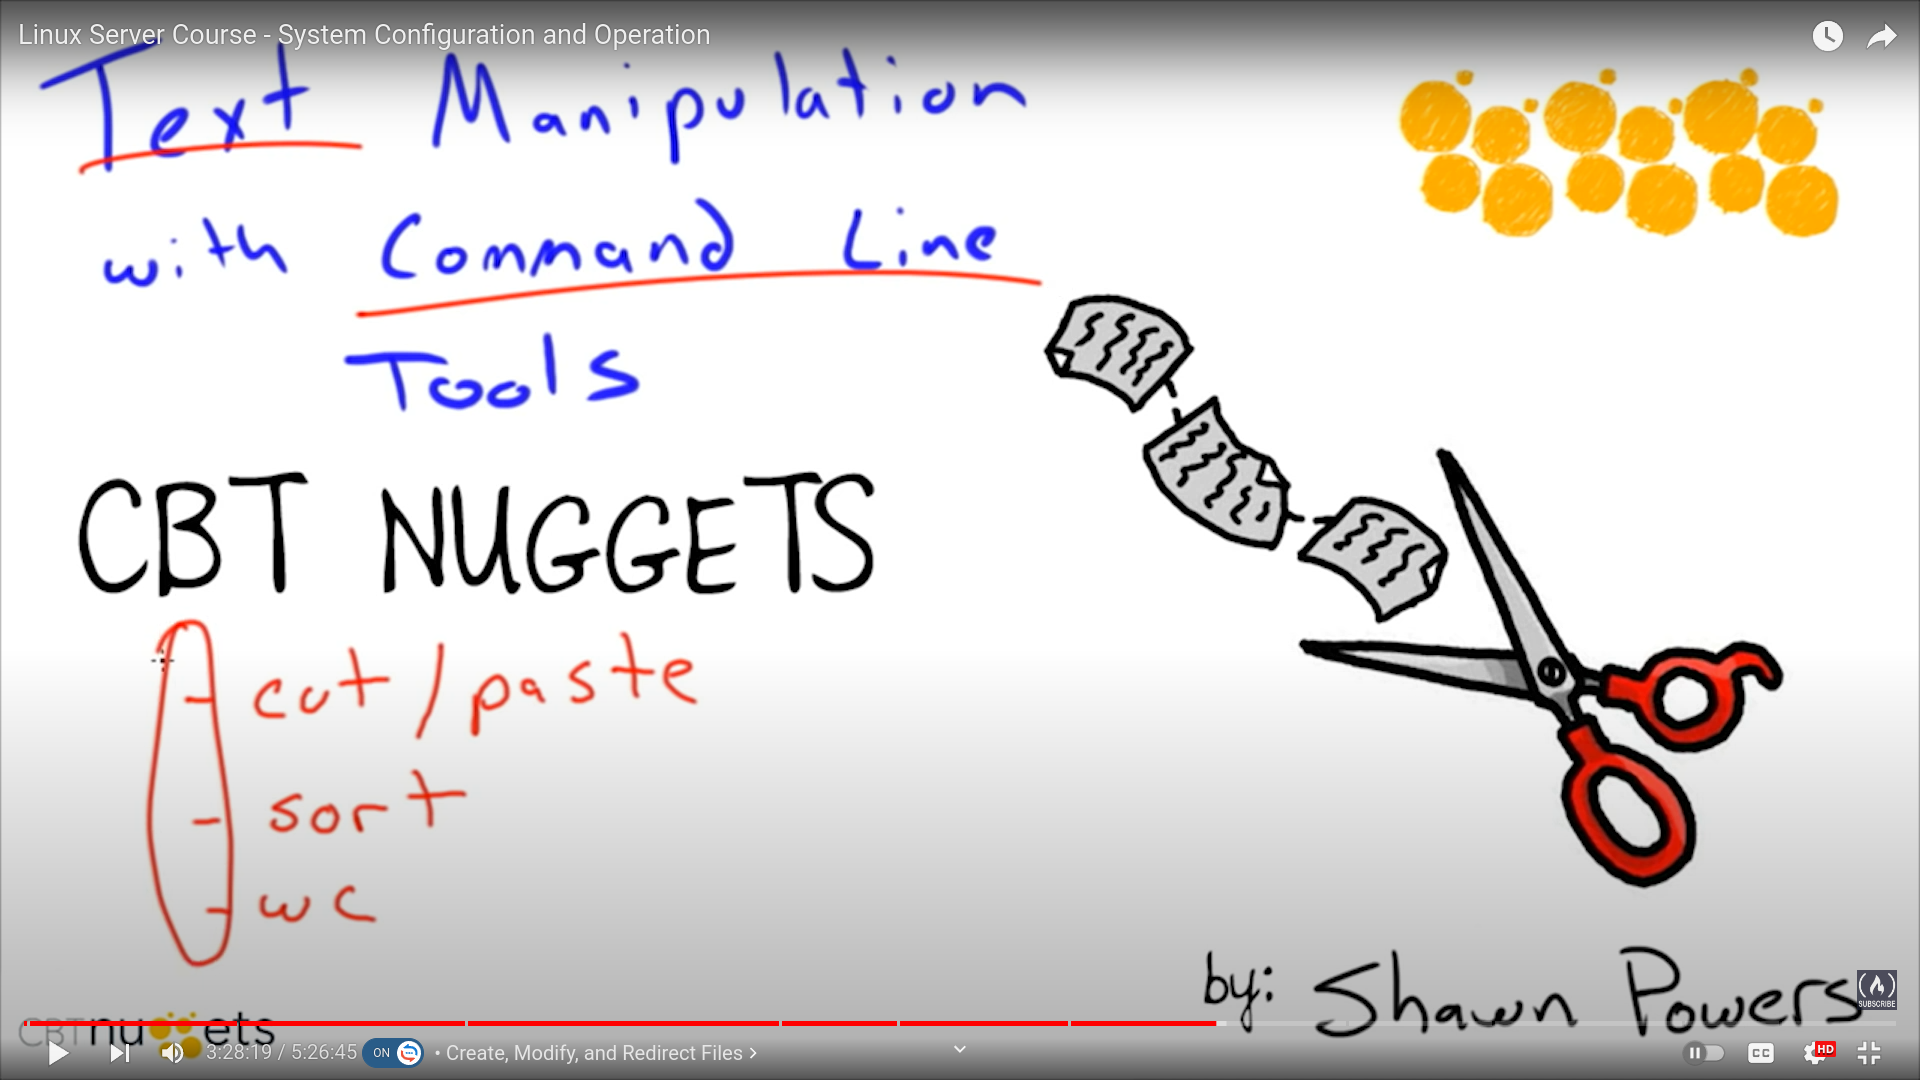 Linux Server Course - System Configuration and Operation
Text Manipulation
with Command Line
Tools
CBT NUGGETS
- cut/paste
- sort
- wc
by: Shawn Powers
SUBSCRIBE
CBTnuggets
3:28:19 / 5:26:45 ON • Create, Modify, and Redirect Files CC HD